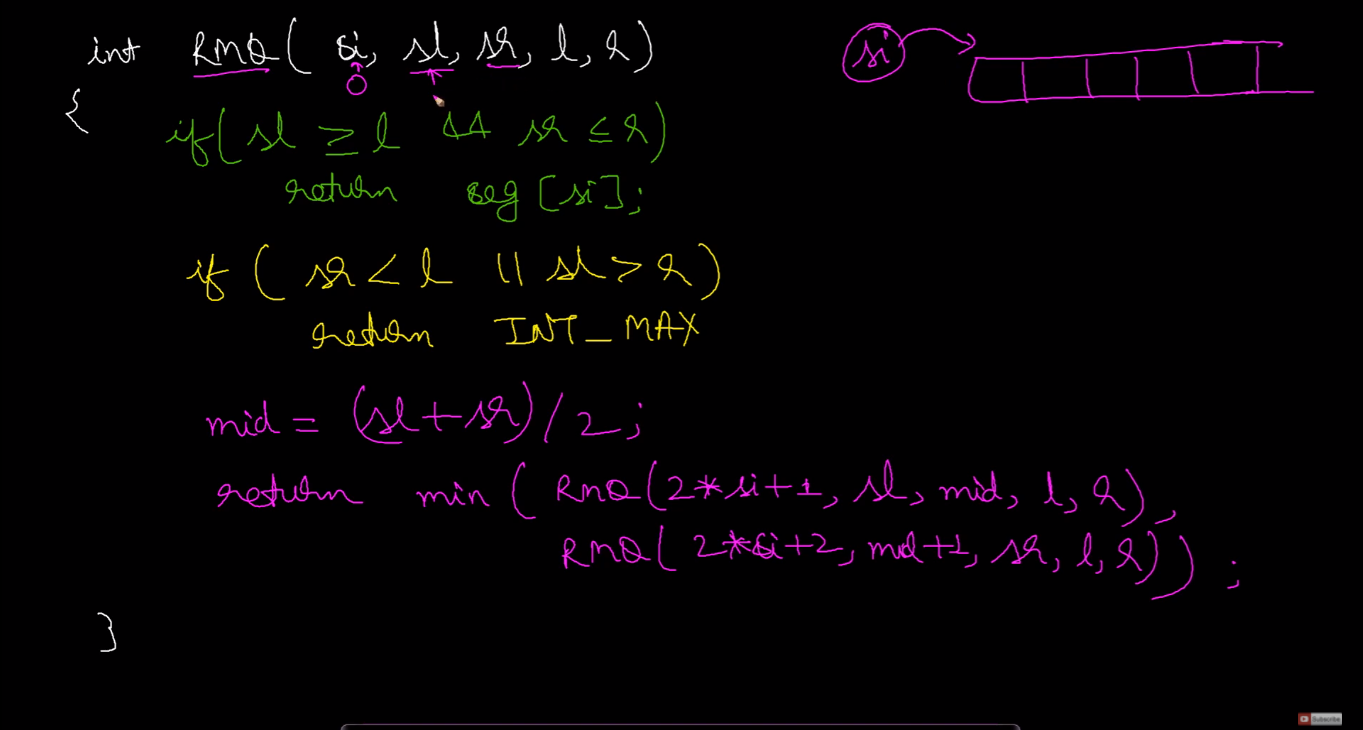 int RMQ( si, sl, sr, l, r)
0
si
{
if( sl ≥ l && sr ≤ r)
return seg [si];
if ( sr < l || sl > r)
return INT_MAX
mid = (sl + sr) / 2;
return min ( RMQ(2*si+1, sl, mid, l, r),
RMQ( 2*si+2, mid+1, sr, l, r)) ;
}
Subscribe